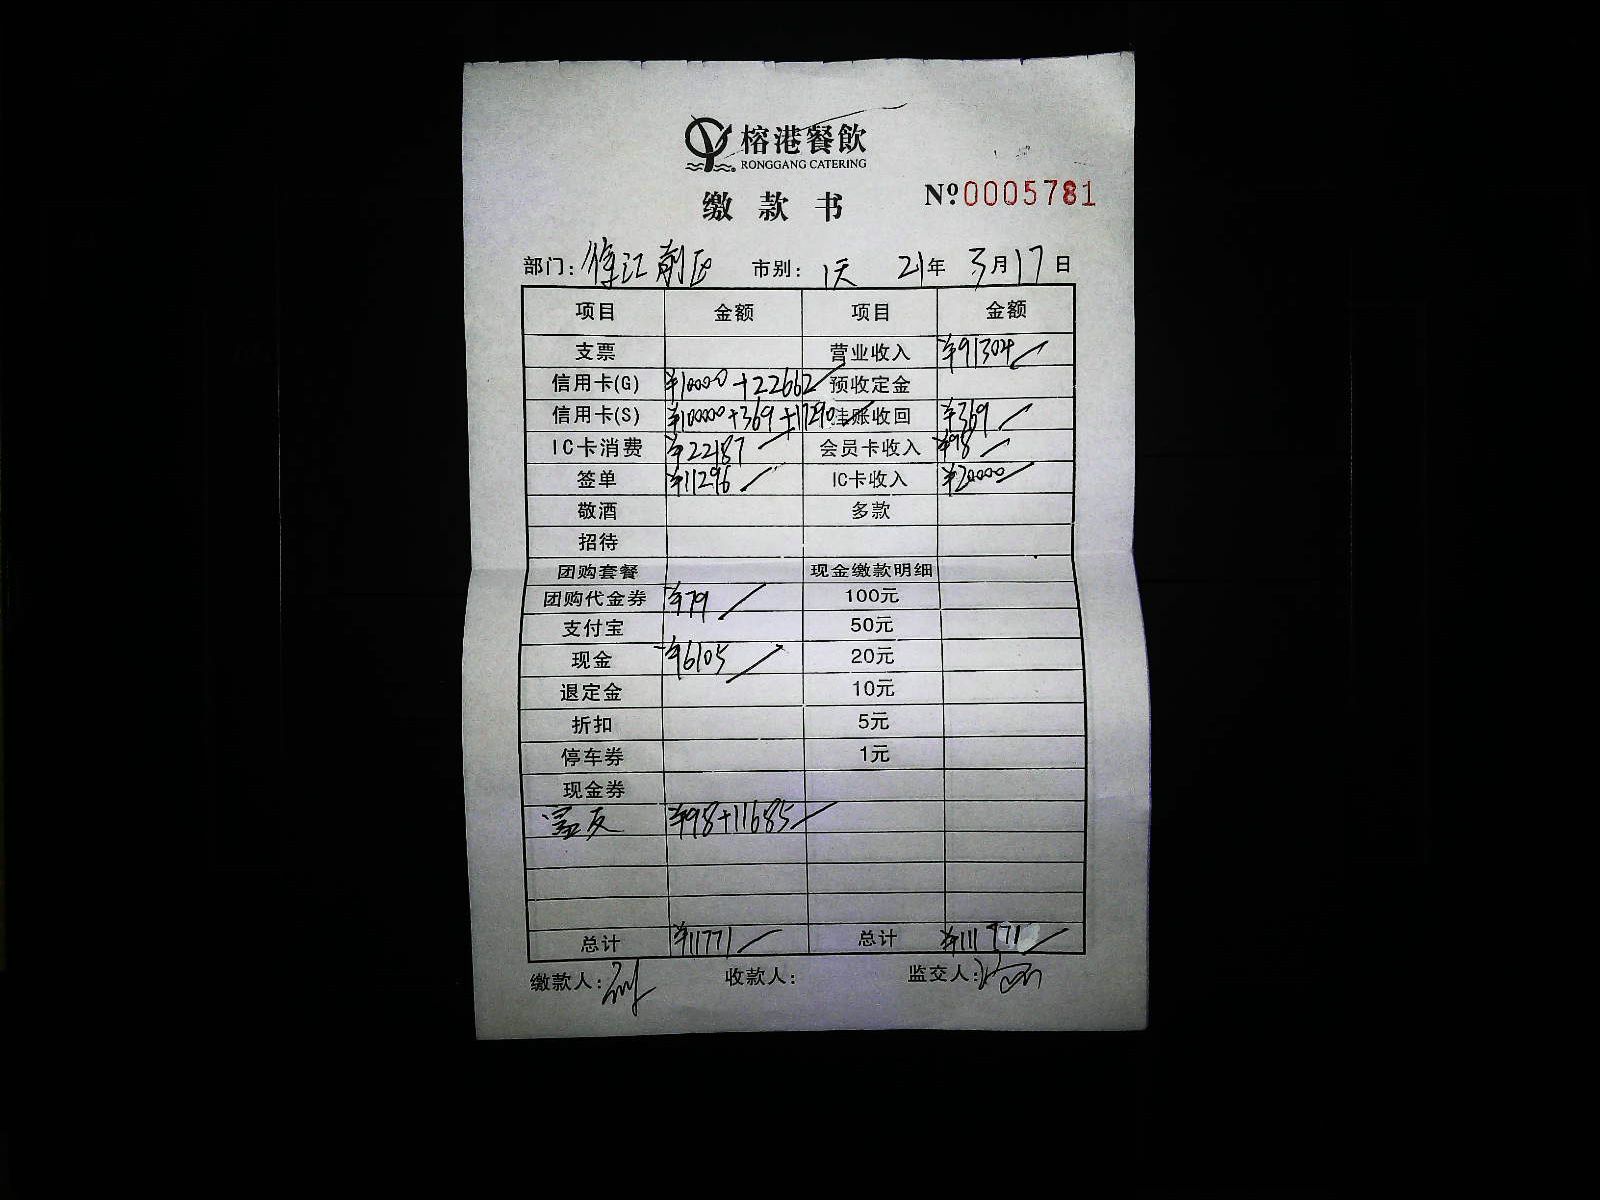 榕港餐飲
RONGGANG CATERING
缴款书
Nº.0005781
部门: 江前区 市别: 1天 21年 3月17日
项目 金额 项目 金额
支票 营业收入 ¥91304
信用卡(G) ¥10000+22662 预收定金
信用卡(S) ¥10000+369+17290 挂账收回 ¥369
IC卡消费 ¥22187 会员卡收入 ¥98
签单 ¥11296 IC卡收入 ¥20000
敬酒 多款
招待
团购套餐 现金缴款明细
团购代金券 ¥79 100元
支付宝 50元
现金 ¥6105 20元
退定金 10元
折扣 5元
停车券 1元
现金券
¥98+11685
总计 ¥11771 总计 ¥111771
缴款人: 收款人: 监交人: